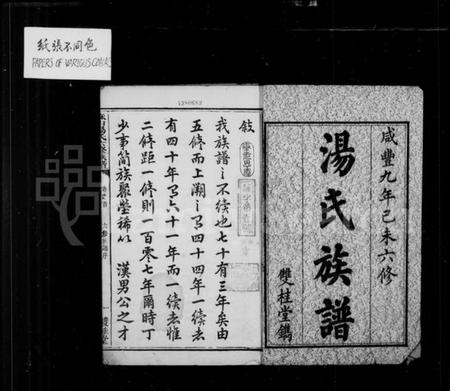 紙張不同色
PAPERS OF VARIOUS COLORS
咸豐九年己未六修
湯氏族譜
雙桂堂鐫
敍
我族譜之不續也七十有三年矣由
五修而上溯之有四十四年一續者
有四十年有六十一年而一續者惟
二修距一修則一百零七年爾時丁
少事簡族聚塋稀以 漢男公之才